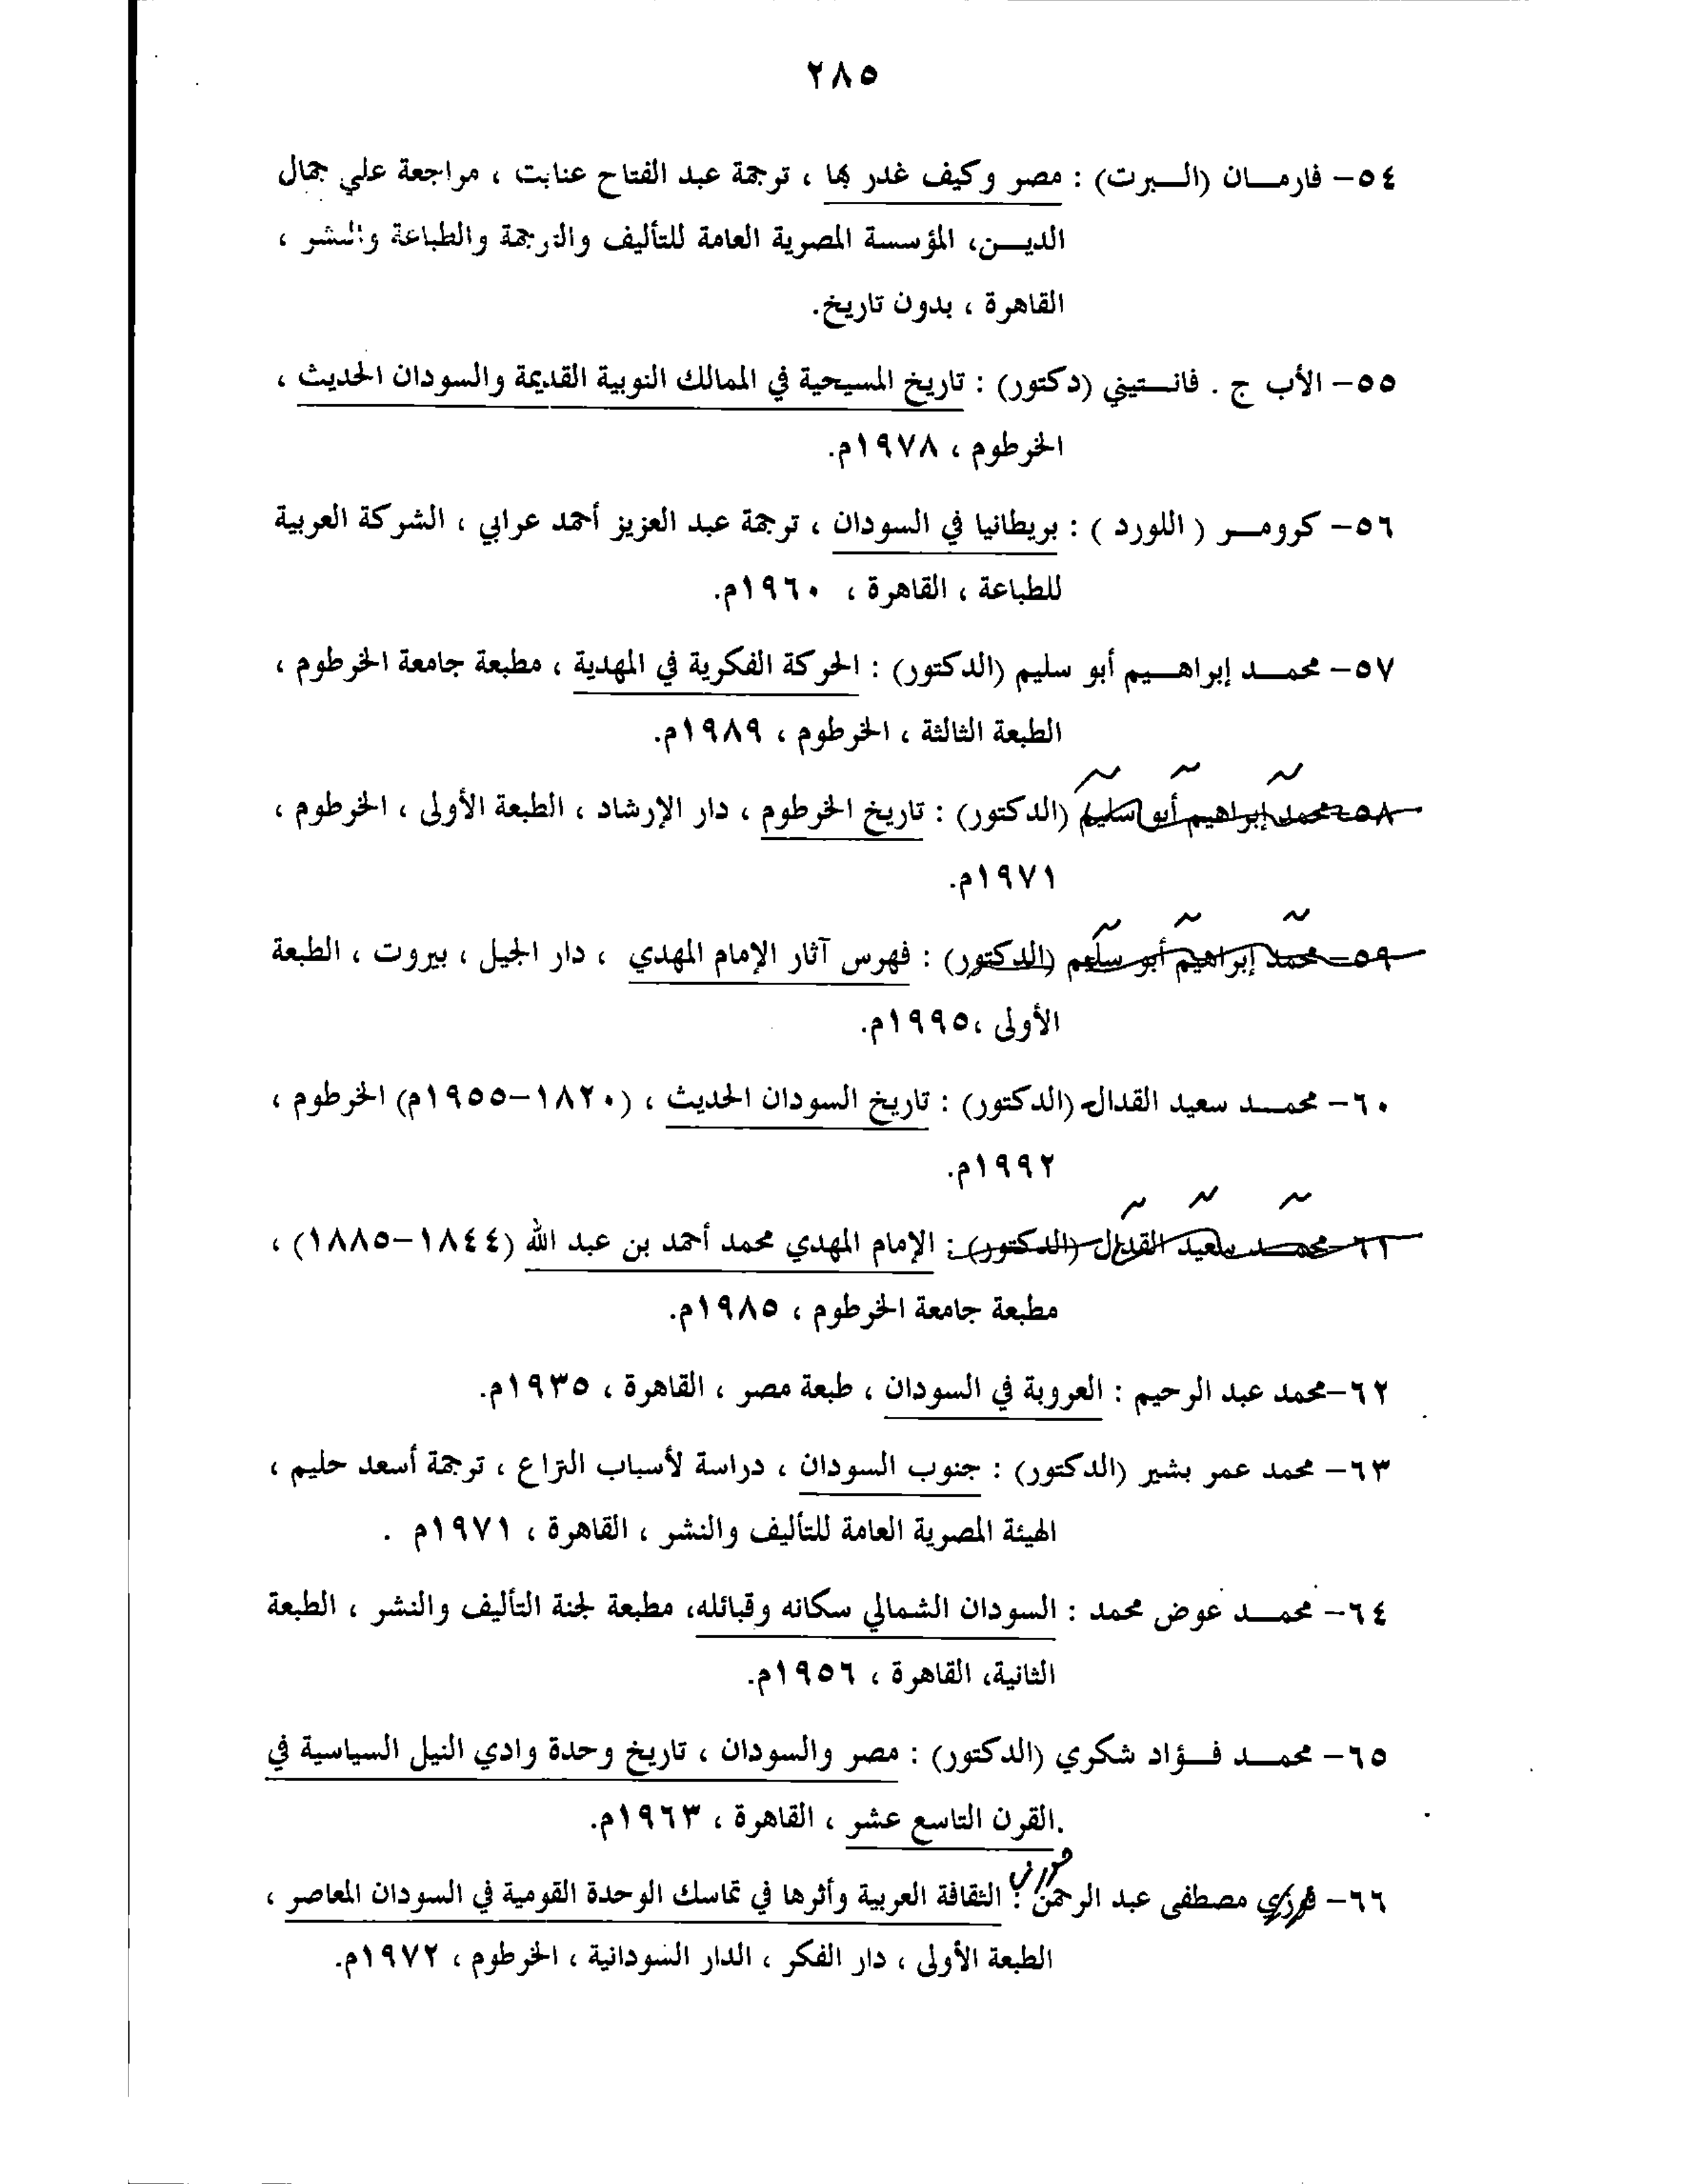 ٢٨٥
٥٤- فارمـــان (الـــبرت) : مصر وكيف غدر بها ، ترجمة عبد الفتاح عنابت ، مراجعة علي جمال
الديـــن، المؤسسة المصرية العامة للتأليف والترجمة والطباعة والنشر ،
القاهرة ، بدون تاريخ.
٥٥- الأب ج . فانـــتيني (دكتور) : تاريخ المسيحية في الممالك النوبية القديمة والسودان الحديث ،
الخرطوم ، ١٩٧٨م.
٥٦- كرومـــر ( اللورد ) : بريطانيا في السودان ، ترجمة عبد العزيز أحمد عرابي ، الشركة العربية
للطباعة ، القاهرة ، ١٩٦٠م.
٥٧- محمـــد إبراهـــيم أبو سليم (الدكتور) : الحركة الفكرية في المهدية ، مطبعة جامعة الخرطوم ،
الطبعة الثالثة ، الخرطوم ، ١٩٨٩م.
٥٨- محمد إبراهيم أبو سليم (الدكتور) : تاريخ الخرطوم ، دار الإرشاد ، الطبعة الأولى ، الخرطوم ،
١٩٧١م.
٥٩- محمد إبراهيم أبو سليم (الدكتور) : فهرس آثار الإمام المهدي ، دار الجيل ، بيروت ، الطبعة
الأولى ،١٩٩٥م.
٦٠- محمـــد سعيد القدال (الدكتور) : تاريخ السودان الحديث ، (١٨٢٠-١٩٥٥م) الخرطوم ،
١٩٩٢م.
٦١- محمـــد سعيد القدال (الدكتور) : الإمام المهدي محمد أحمد بن عبد الله (١٨٤٤-١٨٨٥) ،
مطبعة جامعة الخرطوم ، ١٩٨٥م.
٦٢-محمد عبد الرحيم : العروبة في السودان ، طبعة مصر ، القاهرة ، ١٩٣٥م.
٦٣- محمد عمر بشير (الدكتور) : جنوب السودان ، دراسة لأسباب النزاع ، ترجمة أسعد حليم ،
الهيئة المصرية العامة للتأليف والنشر ، القاهرة ، ١٩٧١م .
٦٤- محمـــد عوض محمد : السودان الشمالي سكانه وقبائله، مطبعة لجنة التأليف والنشر ، الطبعة
الثانية، القاهرة ، ١٩٥٦م.
٦٥- محمـــد فـــؤاد شكري (الدكتور) : مصر والسودان ، تاريخ وحدة وادي النيل السياسية في
القرن التاسع عشر ، القاهرة ، ١٩٦٣م.
٦٦- مصطفى عبد الرحمن : الثقافة العربية وأثرها في تماسك الوحدة القومية في السودان المعاصر ،
الطبعة الأولى ، دار الفكر ، الدار السودانية ، الخرطوم ، ١٩٧٢م.